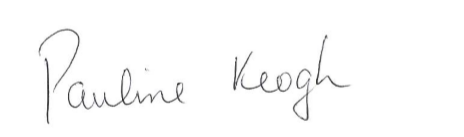 Pauline Keogh